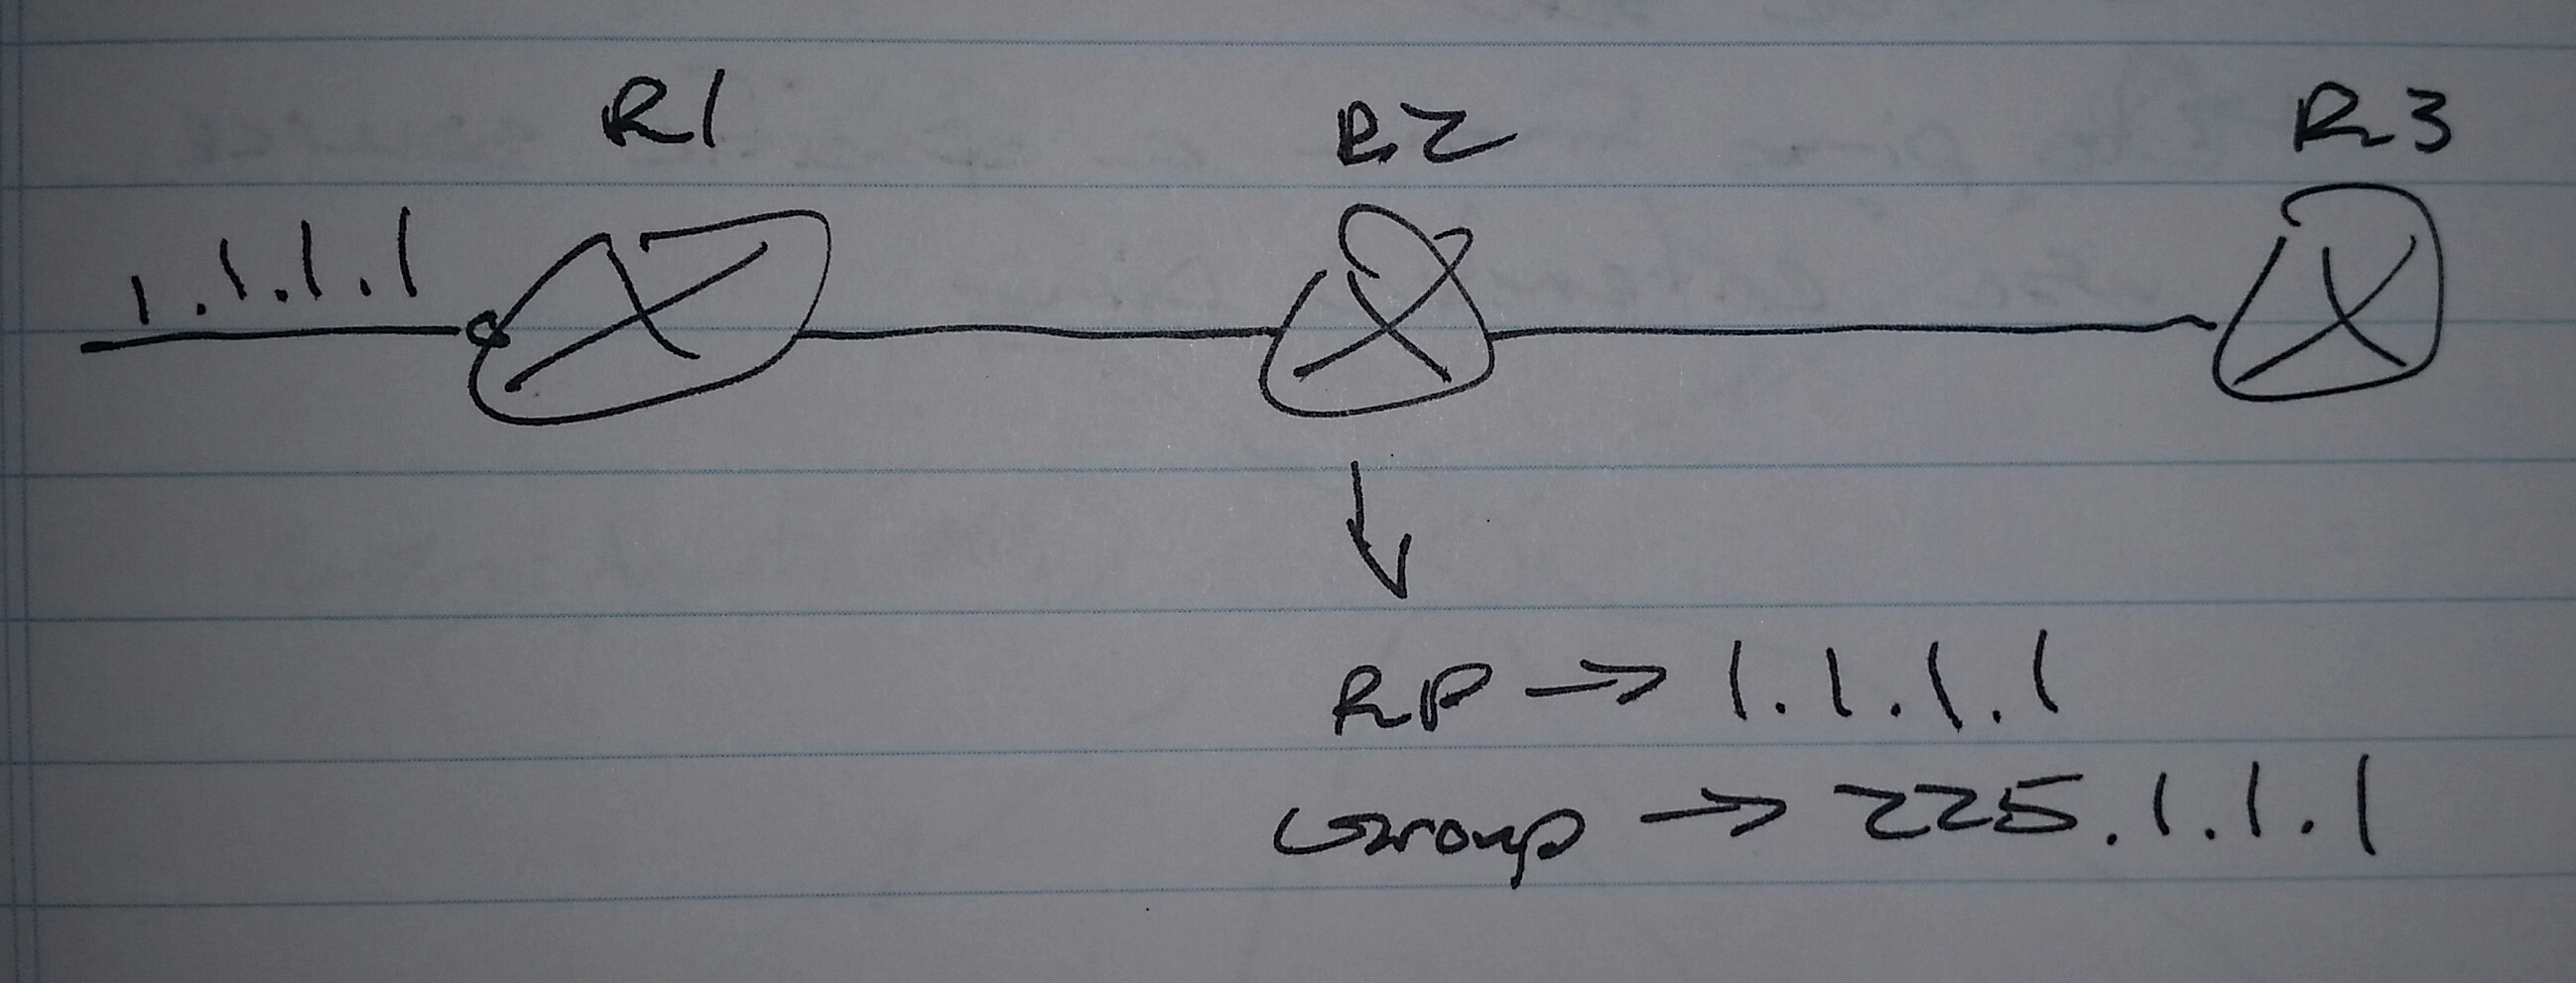 R1 R2 R3
1.1.1.1
RP → 1.1.1.1
Group → 225.1.1.1